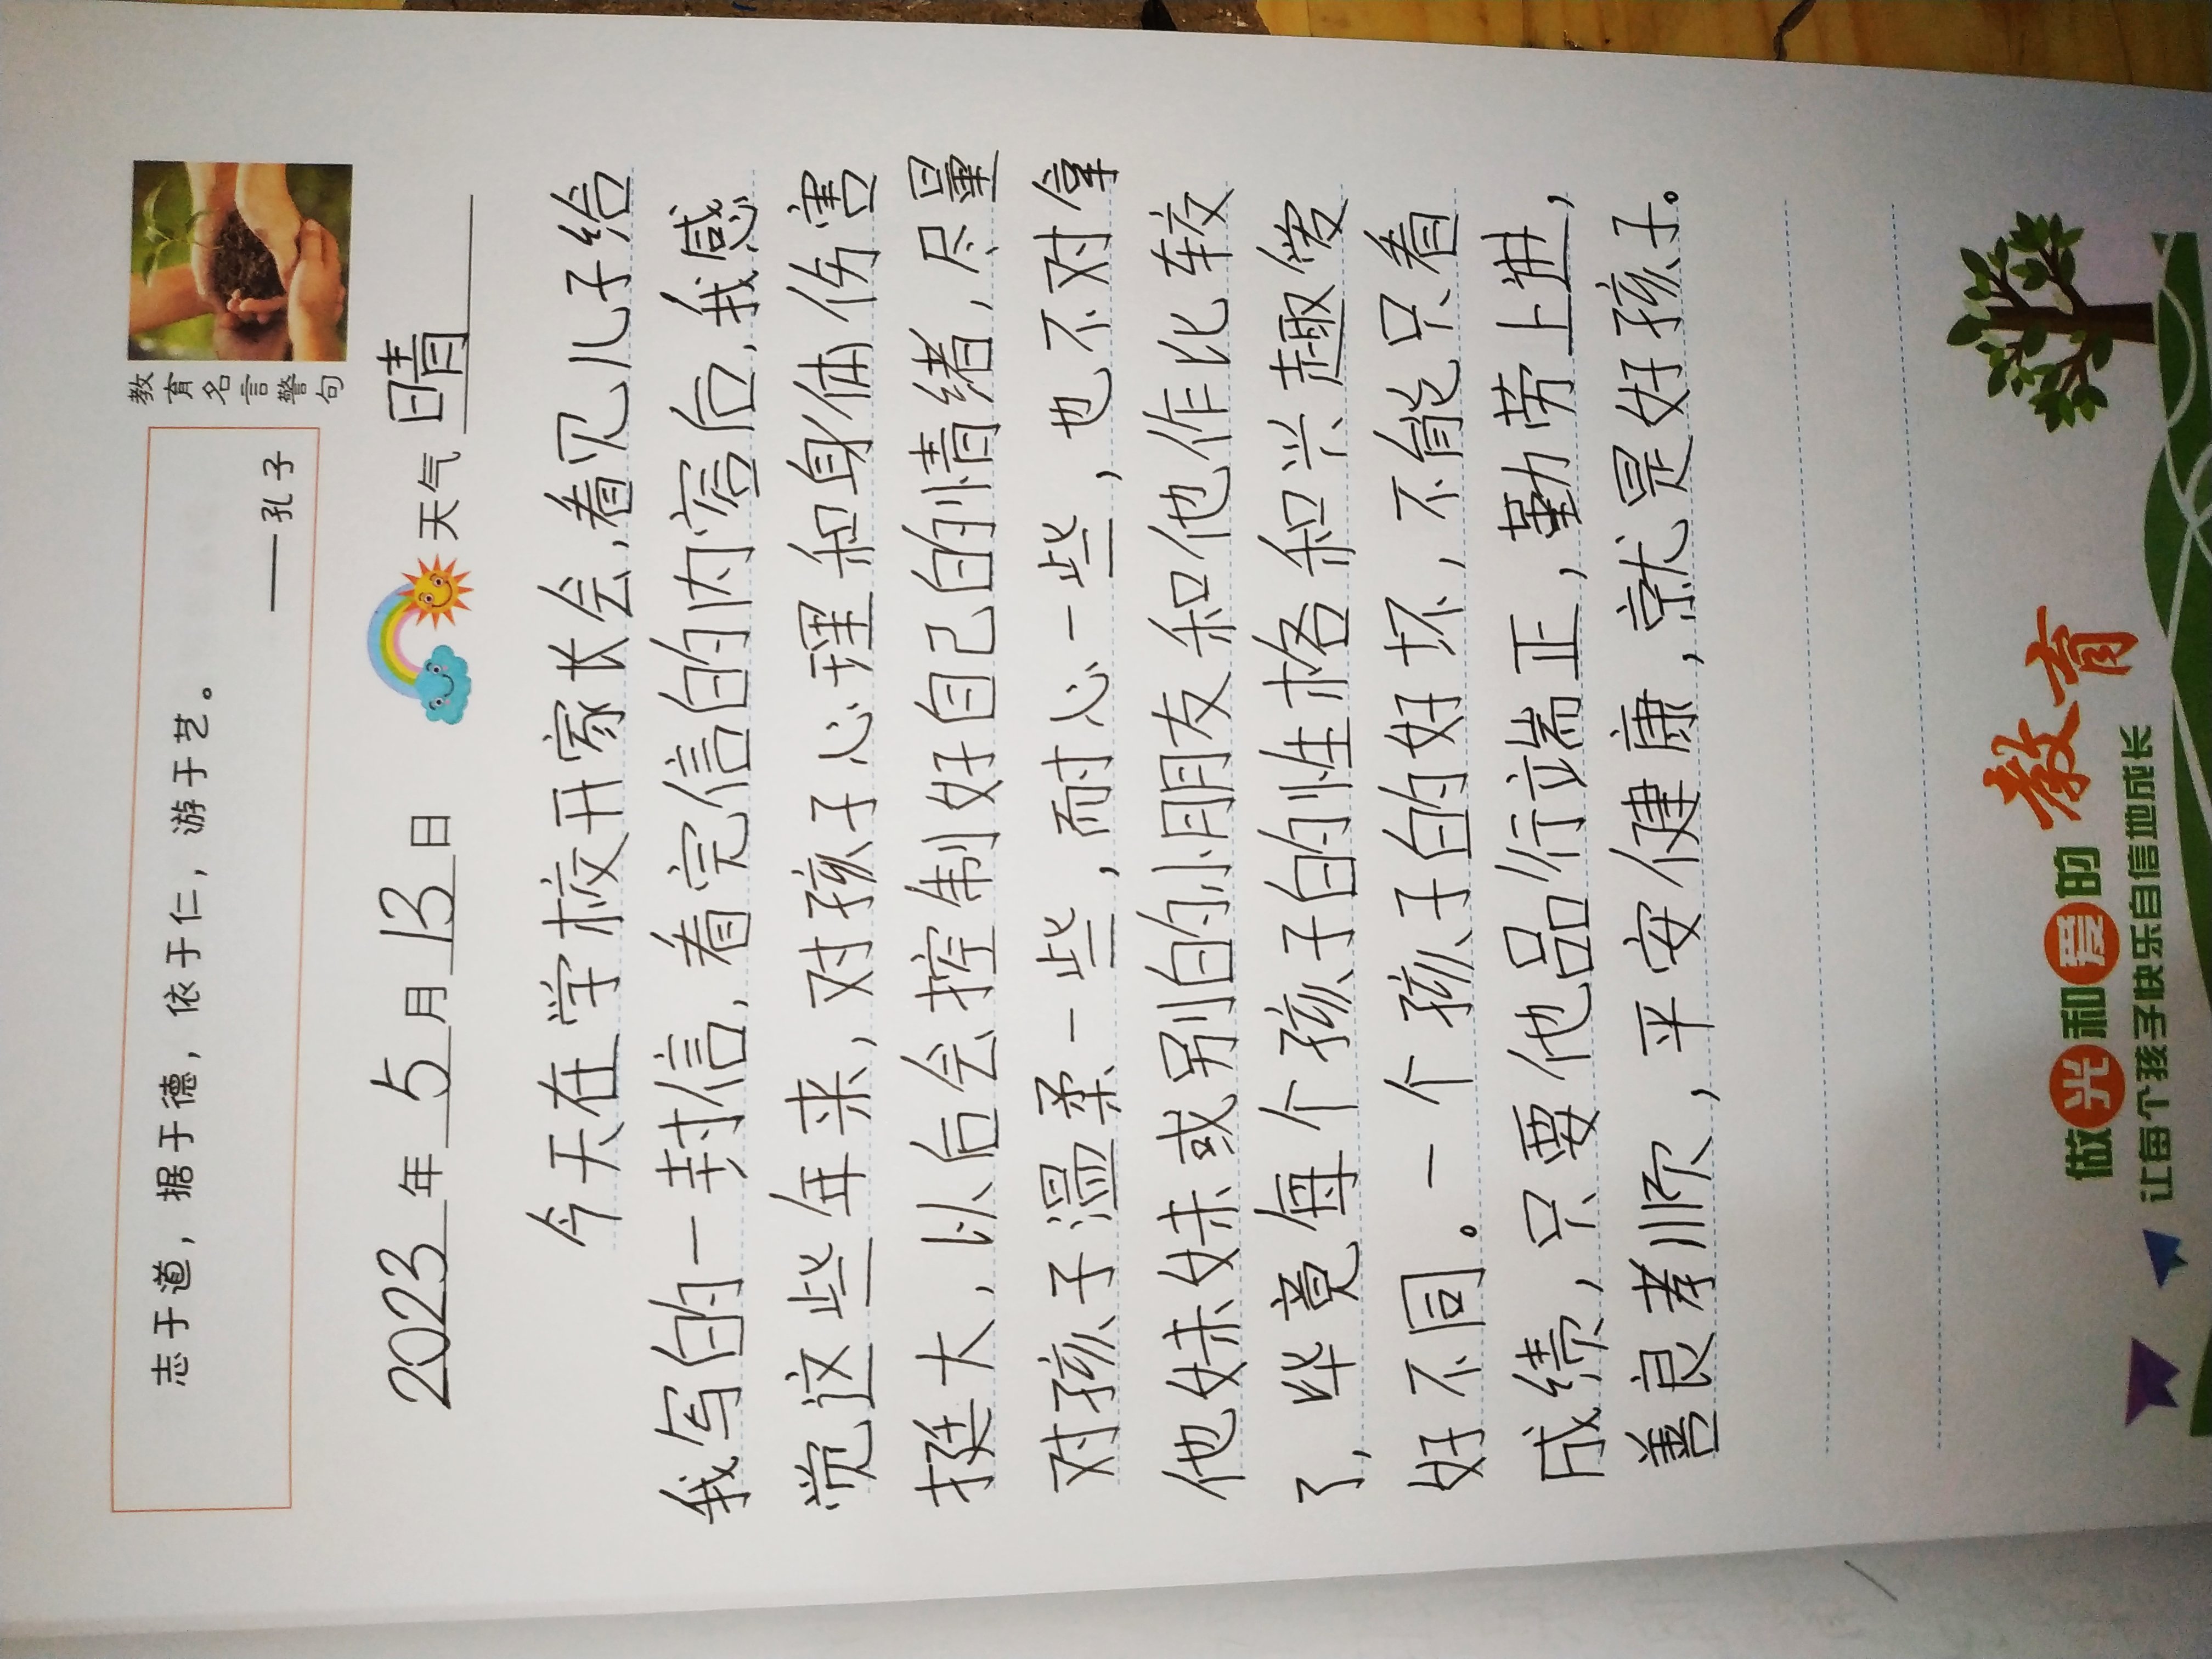 志于道，据于德，依于仁，游于艺。
——孔子
教育名言警句
2023年5月13日 天气 晴
今天在学校开家长会，看见儿子给
我写的一封信，看完信的内容后，我感
觉这些年来，对孩子心理和身体伤害
挺大，以后会控制好自己的情绪，尽量
对孩子温柔一些，耐心一些，也不对拿
他妹妹或别的小朋友和他作比较
了，毕竟每个孩子的性格和兴趣爱
好不同。一个孩子的好坏，不能只看
成绩，只要他品行端正，勤劳上进，
善良孝顺，平安健康，就是好孩子。
做光和爱的教育
让每个孩子快乐自信地成长